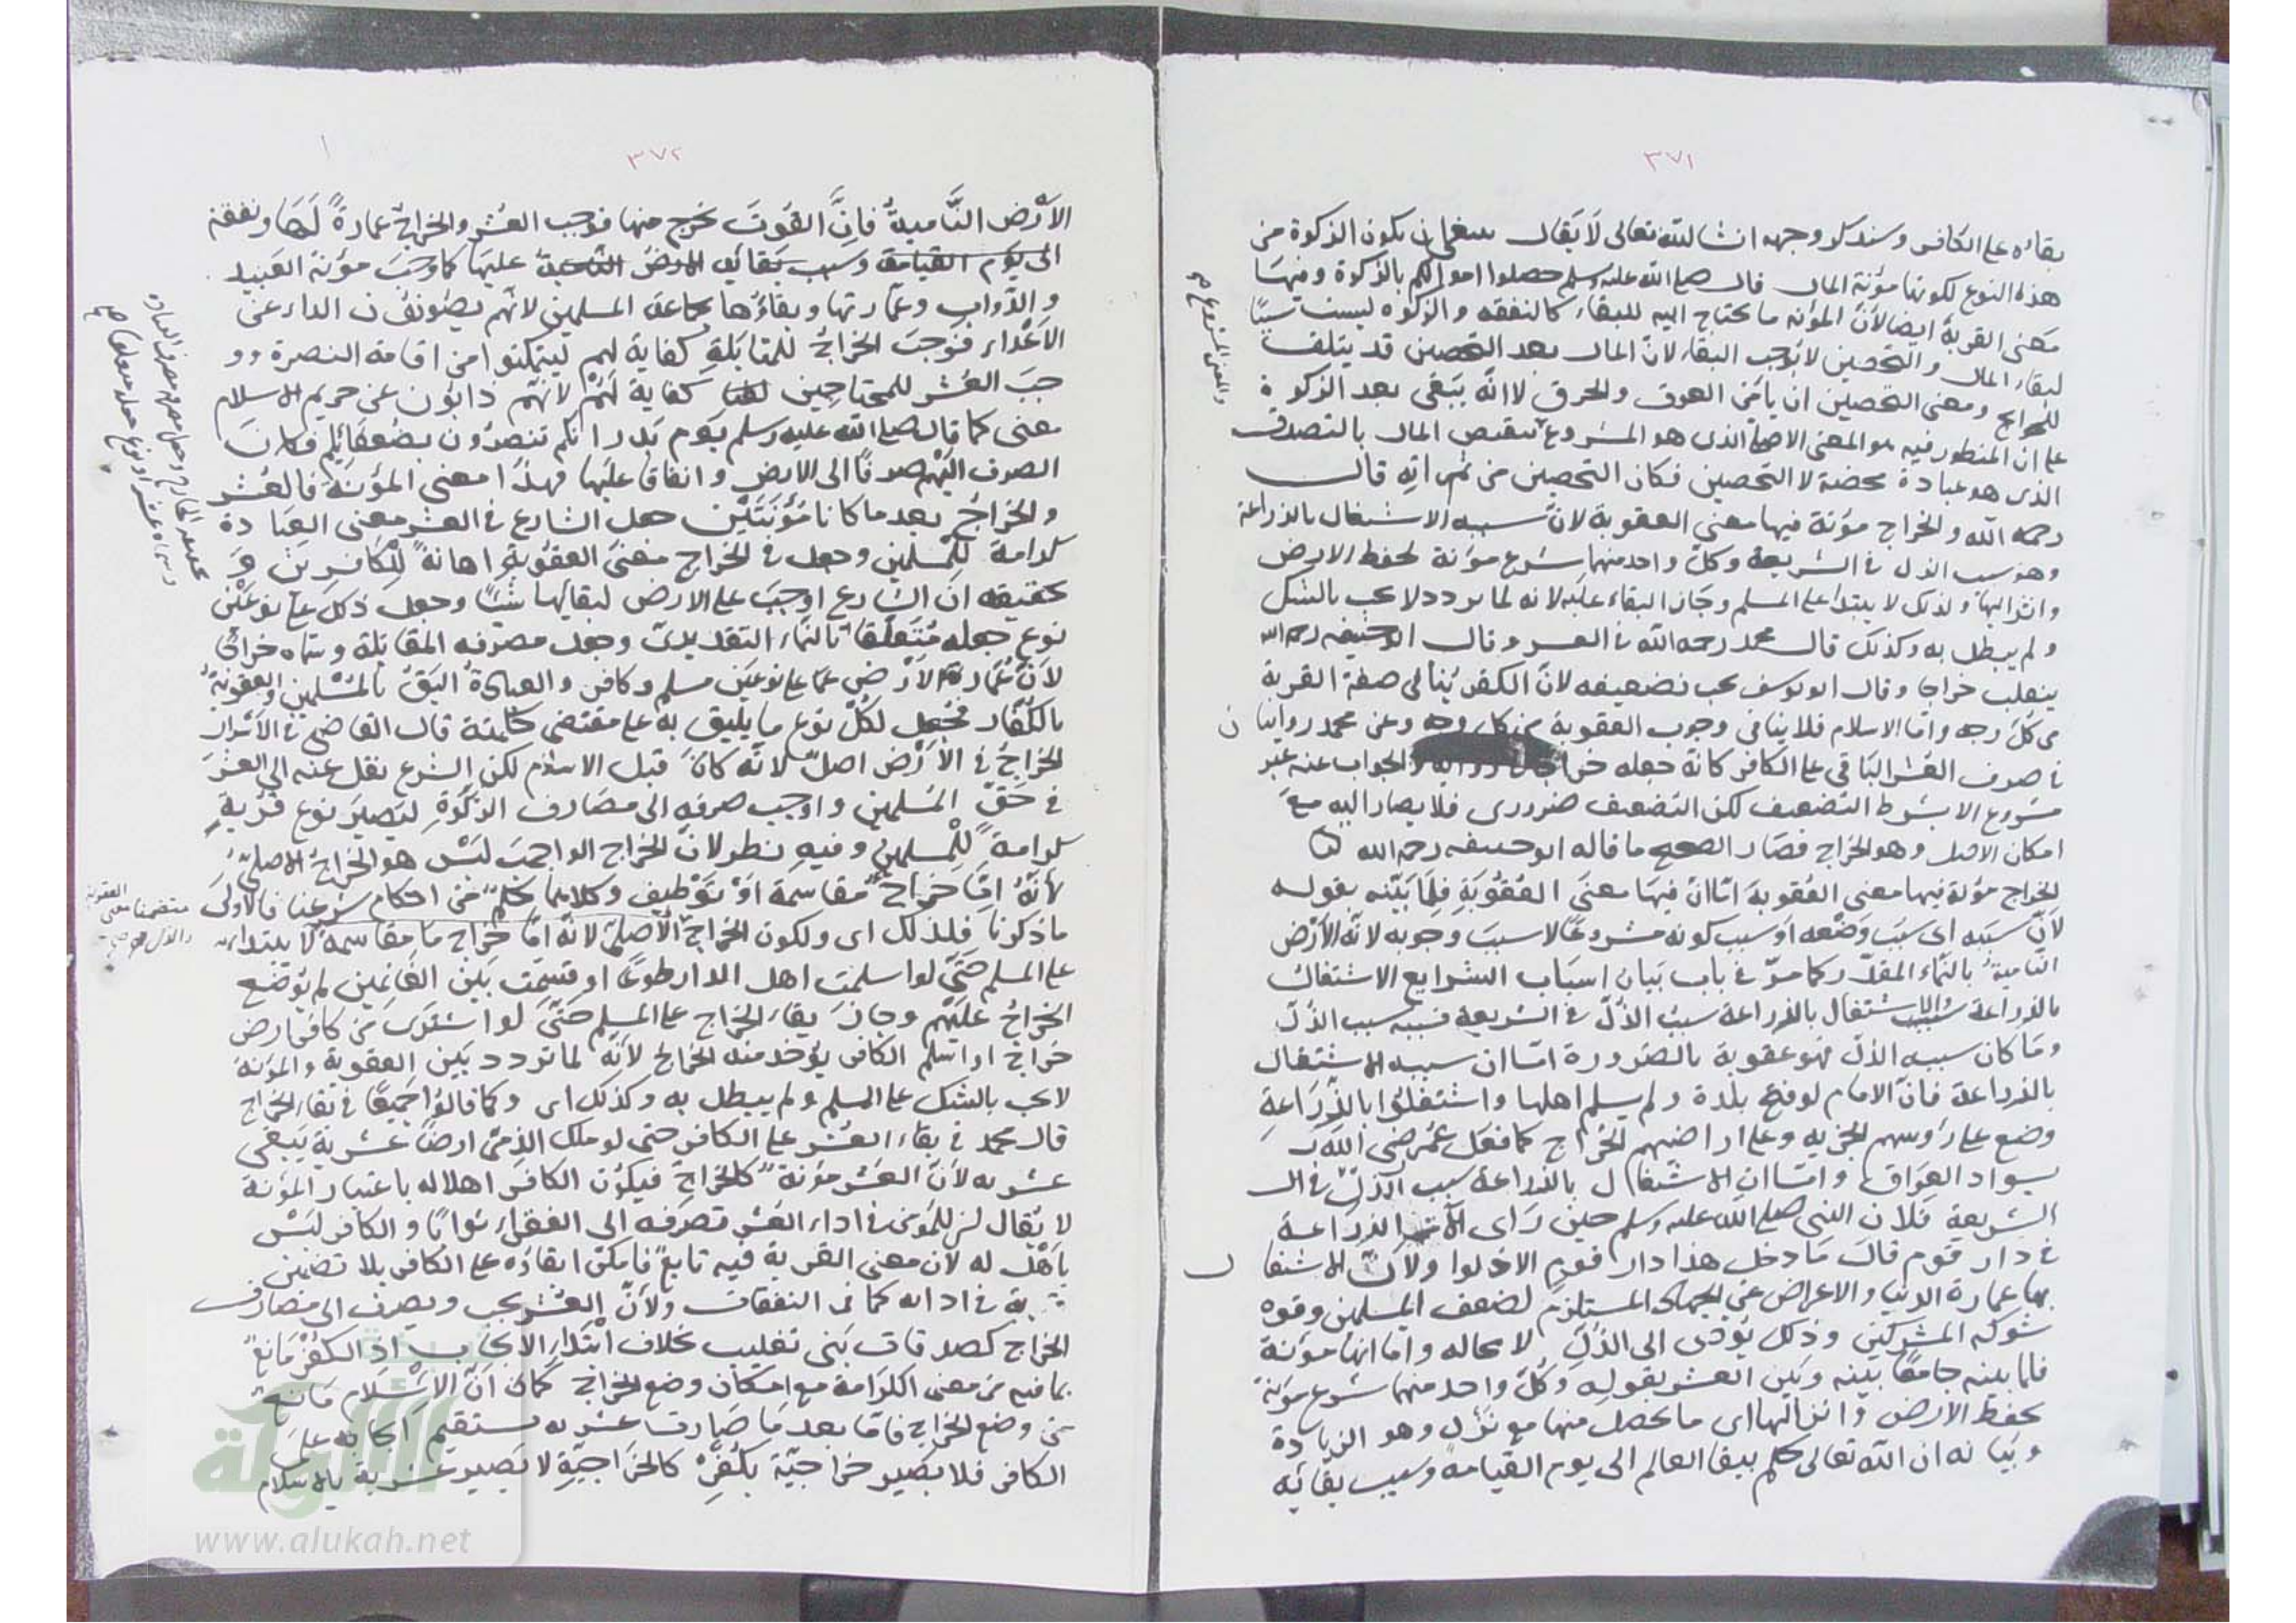 ٣٧١
بقاؤه على الكافر وسنذكر وجهه ان شاء الله تعالى لا يقال ينبغي ان يكون الزكوة من
هذه النوع لكونها مؤنة المال قال صلى الله عليه وسلم حصلوا اموالكم بالزكوة ومنها
معنى القربة ايضا لان المؤنة ما يحتاج اليه للبقاء كالنفقة والزكوة ليست سببا
لبقاء المال والتحصين لا يوجب البقاء لان المال بعد التحصين قد يتلف
للخراج ومعنى التحصين ان يأمن الغرق والحرق لا انه يبقى بعد الزكوة
على ان المنظور فيه هو المعنى الاصلي الذي هو المشروع تنقيص المال بالتصدق
الذي هو عبادة محضة لا التحصين فكان التحصين من ثمراته قال
رحمه الله والخراج مؤنة فيها معنى العقوبة لان سببه الاشتغال بالزراعة
وهو سبب الذل في الشريعة وكل واحد منهما شرع مؤنة لحفظ الارض
وانزالها ولذلك لا يبتدا على المسلم وجاز البقاء عليه لانه لما تردد لا يجب بالشك
ولم يبطل به وكذلك قال محمد رحمه الله في العشر وقال ابو حنيفة رحمه الله
ينقلب خراجا وقال ابو يوسف يجب تضعيفه لان الكفر ينافي صفة القربة
من كل وجه واما الاسلام فلا ينافي وجوب العقوبة من كل وجه وعن محمد روايتان
في صرف العشر الباقي على الكافر كانه جعله خراجا في رواية والجواب عنه غير
مشروع الا بشرط التضعيف لكن التضعيف ضروري فلا يصار اليه مع
امكان الاصل وهو الخراج فصار الصحيح ما قاله ابو حنيفة رحمه الله
الخراج مؤنة فيها معنى العقوبة اما ان فيها معنى العقوبة فلما بينه بقوله
لان سببه اي سبب وضعه او سبب كونه مشروعا لا سبب وجوبه لانه الارض
النامية بالنماء المقدر كما مر في باب بيان اسباب الشرايع الاشتغال
بالزراعة والاشتغال بالزراعة سبب الذل في الشريعة فسببه سبب الذل
وما كان سببه الذل فهو عقوبة بالضرورة اما ان سببه الاشتغال
بالزراعة فان الامام لو فتح بلدة ولم يسلم اهلها واشتغلوا بالزراعة
وضع على رؤسهم الجزية وعلى اراضيهم الخراج كما فعل عمر رضي الله
بسواد العراق واما ان الاشتغال بالزراعة سبب الذل في
الشريعة فلان النبي صلى الله عليه وسلم حين رأى الزراعة
في دار قوم قال ما دخل هذا دار قوم الا ذلوا ولان الاشتغال
بها عمارة الدنيا والاعراض عن الجهاد المستلزم لضعف المسلمين وقوة
شوكة المشركين وذلك يؤدى الى الذل لا محالة واما انها مؤنة
فلما بينه جامعا بينه وبين العشر بقوله وكل واحد منهما شرع مؤنة
لحفظ الارض وانزالها اي ما يحصل منها مع نزل وهو الزيادة
وبيانه ان الله تعالى حكم ببقاء العالم الى يوم القيامة وسبب بقائه
٣٧٢
الارض النامية فان القوت يخرج منها فوجب العشر والخراج عمارة لها ونفقة
الى يوم القيامة وسبب بقائه الارض النامية عليها كما وجب مؤنة العبيد
والدواب وعمارتها وبقاؤها بجماعة المسلمين لانهم يصونون الدار عن
الاعداء فوجب الخراج للمقاتلة كفاية لهم ليتمكنوا من اقامة النصرة وو
جب العشر للمحتاجين كفاية لهم لانهم ذابون عن حريم الاسلام
معنى كما قال صلى الله عليه وسلم يوم بدر انكم تنصرون بضعفائكم فكان
الصرف اليهم صرفا الى الارض وانفاقا عليها فهذا معنى المؤنة فالعشر
والخراج بعد ما كانا مؤنتين جعل الشارع في العشر معنى العبادة
كرامة للمسلمين وجعل في الخراج معنى العقوبة اهانة للكافرين و
تحقيقه ان الشارع اوجب على الارض لبقائها شيئا وجعل ذلك على نوعين
نوع جعله متعلقا بالنماء التقديري وجعل مصرفه المقاتلة وسماه خراجا
لان عمارة الارض على نوعين مسلم وكافر والعبادة اليق بالمسلمين والعقوبة
بالكفار فجعل لكل نوع ما يليق به على مقتضى حكمته قال القاضي في الاسرار
الخراج في الارض اصل لانه كان قبل الاسلام لكن الشرع نقل عنه الى العشر
في حق المسلمين واوجب صرفه الى مصارف الزكوة ليصير نوع قربة
كرامة للمسلمين وفيه نظر لان الخراج الواجب ليس هو الخراج الاصلي
لانه اما خراج مقاسمة او توظيف وكلاهما حكم من احكام شرعنا فالاولى
ما ذكرنا فلذلك اي ولكون الخراج الاصلي لانه اما خراج مقاسمة لا يبتدا
على المسلم حتى لو اسلمت اهل الدار طوعا او قسمت بين الغانمين لم يوضع
الخراج عليهم وجاز بقاء الخراج على المسلم حتى لو اشترى من كافر ارض
خراج او اسلم الكافر يؤخذ منه الخراج لانه لما تردد بين العقوبة والمؤنة
لا يجب بالشك على المسلم ولم يبطل به وكذلك اي وكما قالوا جميعا في بقاء الخراج
قال محمد في بقاء العشر على الكافر حتى لو ملك الذمي ارضا عشرية يبقى
عشرية لان العشر مؤنة كالخراج فيكون الكافر اهلا له باعتبار المؤنة
لا يقال ان للمؤمن في اداء العشر تصرفه الى الفقراء ثوابا والكافر ليس
باهل له لان معنى القربة فيه تابع فامكن ابقاؤه على الكافر بلا تضمين
في ادائه كما في النفقات ولان العشر يجب ويصرف الى مصارف
الخراج كصدقات بني تغليب بخلاف ابتداء الايجاب اذ الكفر مانع
بما فيه من معنى الكرامة مع امكان وضع الخراج كما ان الاسلام مانع
من وضع الخراج فاما بعد ما صارت عشرية يستقيم ايجابه على
الكافر فلا يصير خراجية بكفره كالخراجية لا تصير عشرية بالاسلام
متضمنا معنى العقوبة
الألوكة
www.alukah.net